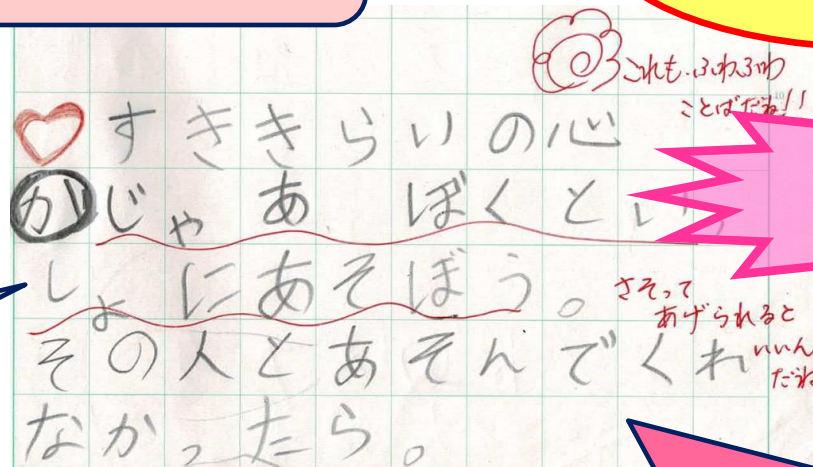 これも、ふわふわ
ことばだね!!
♡すききらいの心
がじゃあ ぼくとい
しょにあそぼう。
さそって
あげられると
いいん
だね
その人とあそんでくれ
なかったら。